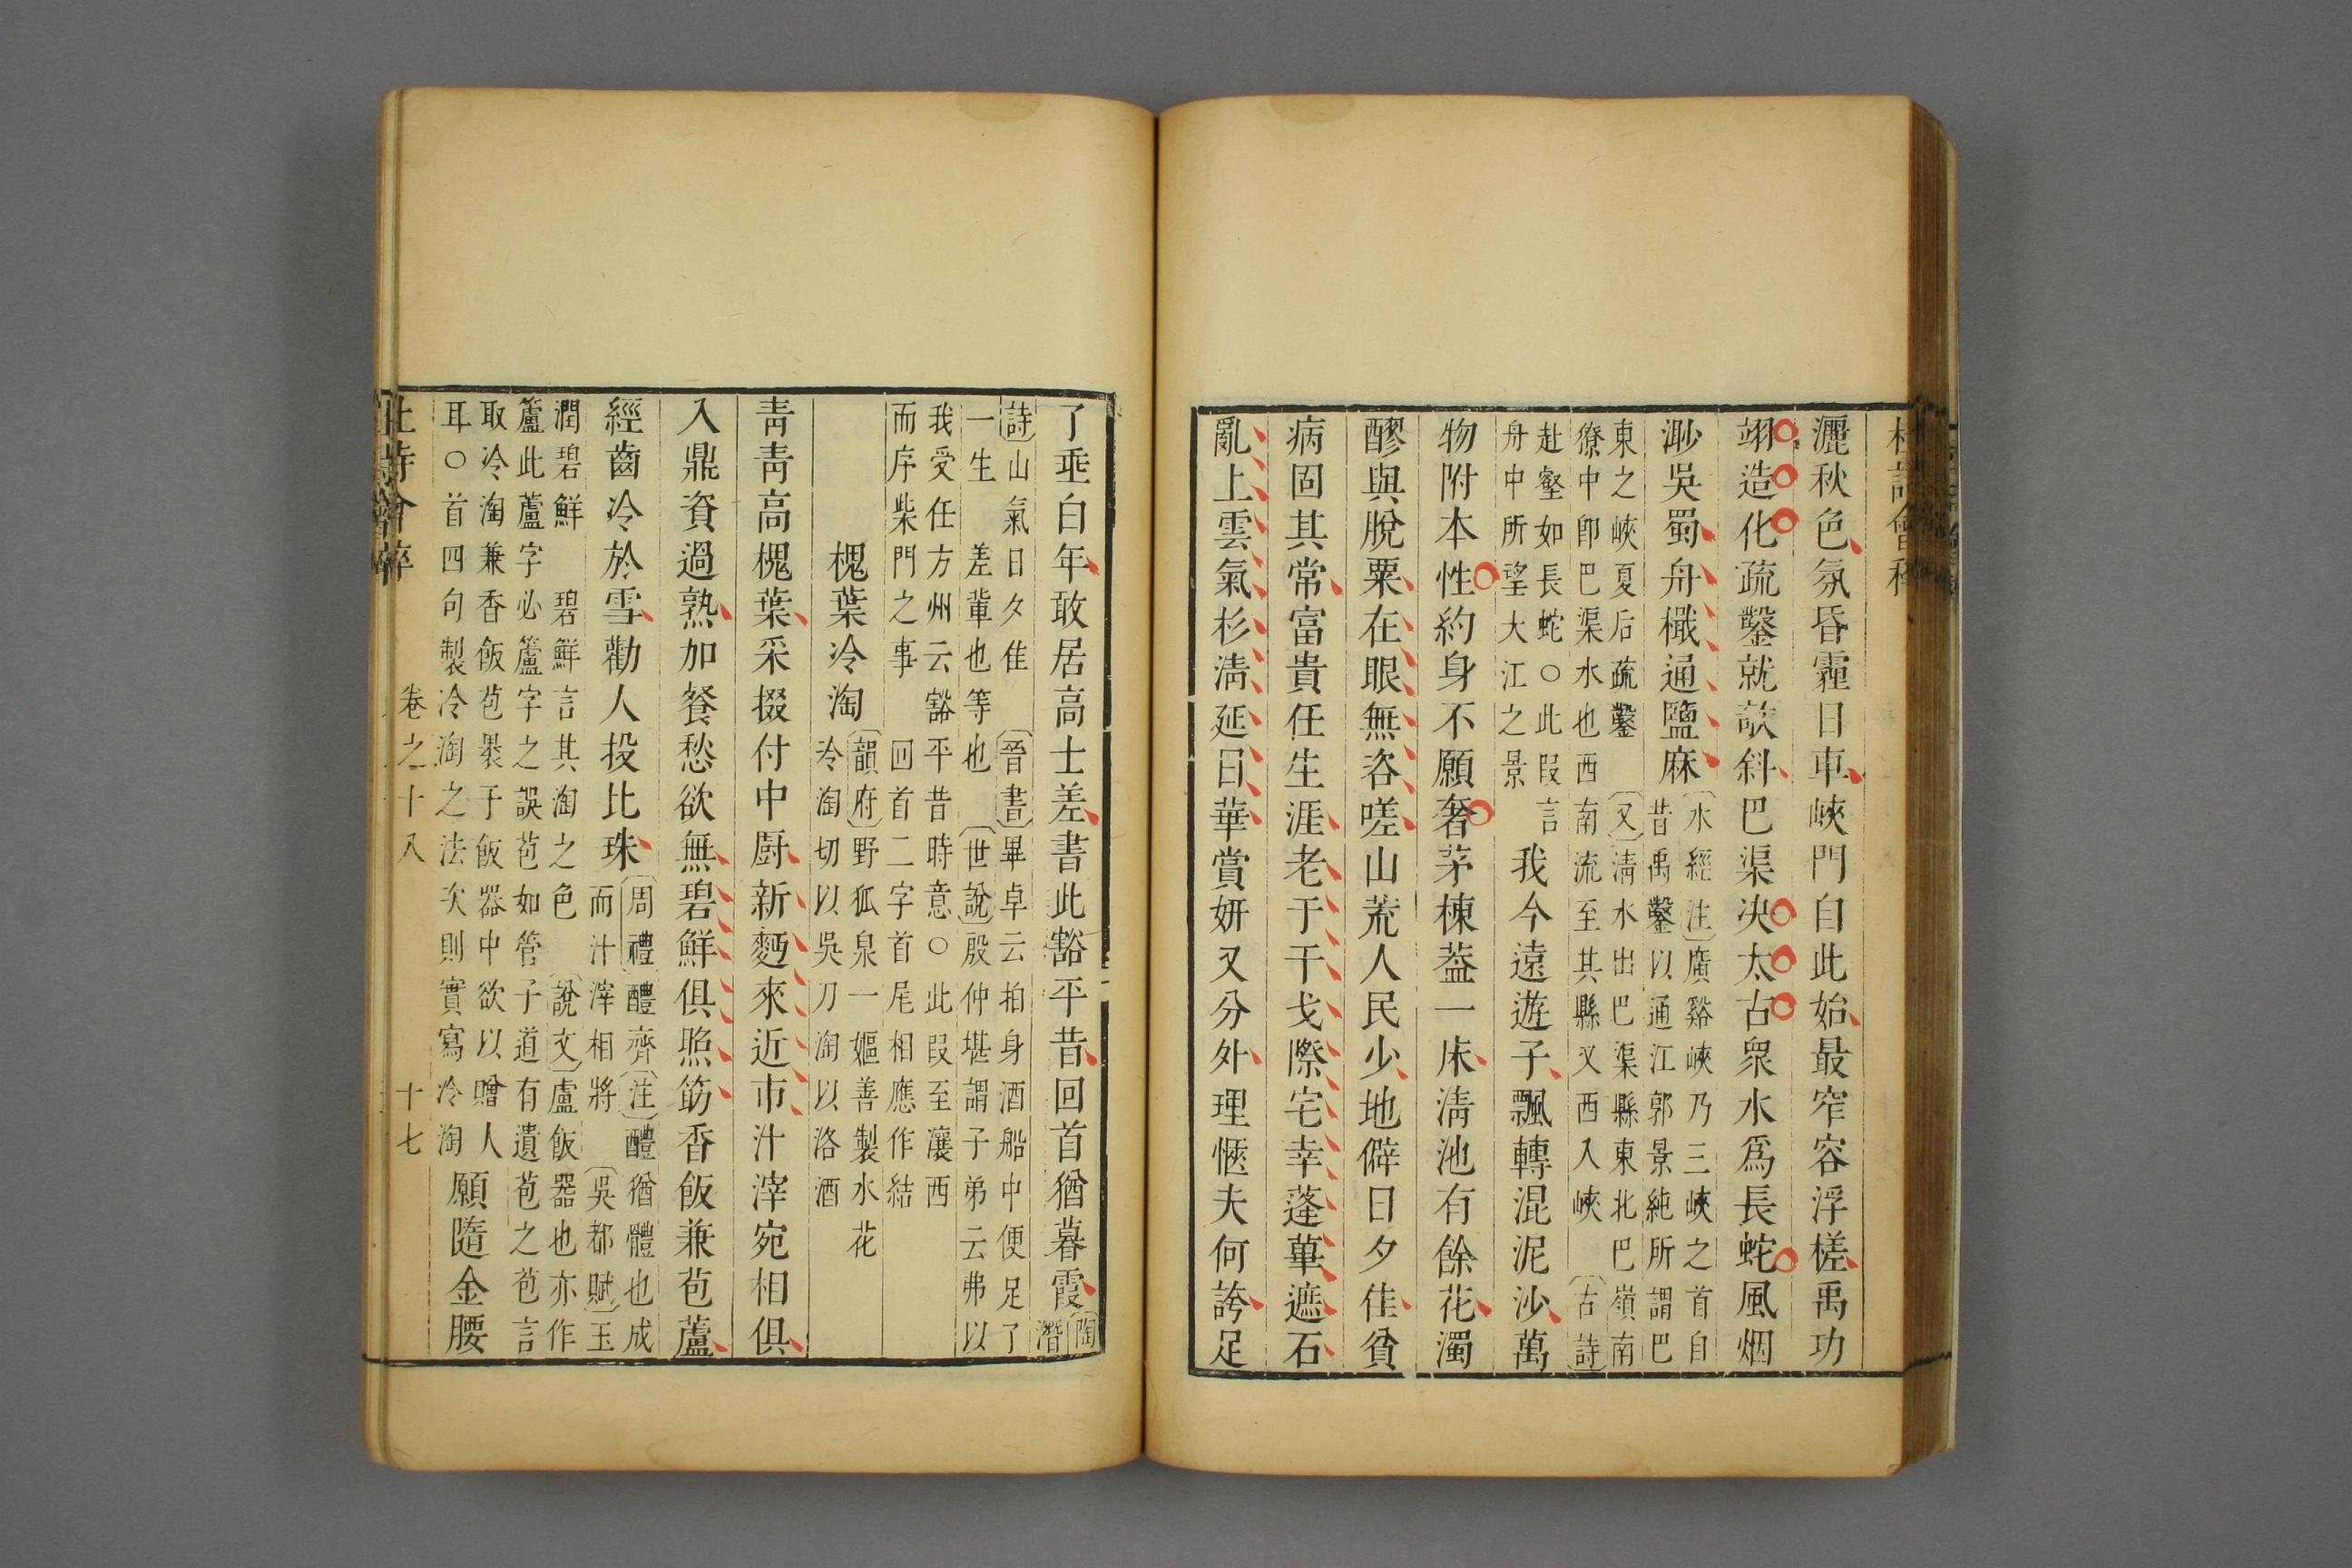 灑秋色氛昏霾日車峽門自此始最窄容浮槎禹功
翊造化疏鑿就欹斜巴渠决太古眾水爲長蛇風烟
渺吳蜀舟檝通鹽麻
水經注廣谿峽乃三峽之首自
昔禹鑿以通江郭景純所謂巴
東之峽夏后疏鑿 又清水出巴渠縣東北巴嶺南
獠中卽巴渠水也西南流至其縣又西入峽 古詩
赴壑如長蛇○此叚言
舟中所望大江之景
我今遠遊子飄轉混泥沙萬
物附本性約身不願奢茅棟葢一床淸池有餘花濁
醪與脫粟在眼無咨嗟山荒人民少地僻日夕佳貧
病固其常富貴任生涯老于干戈際宅幸蓬蓽遮石
亂上雲氣杉淸延日華賞姸又分外理愜夫何誇足
了垂白年敢居高士差書此豁平昔回首猶暮霞
陶
潛
詩山氣日夕佳 晉書畢卓云拍身酒船中便足了
一生 差輩也等也 世說殷仲堪謂子弟云弗以
我受任方州云豁平昔時意○此叚至瀼西
而序柴門之事 回首二字首尾相應作結
槐葉冷淘
韻府野狐泉一嫗善製水花
冷淘切以吳刀淘以洛酒
靑靑高槐葉采掇付中厨新麪來近市汁滓宛相俱
入鼎資過熟加餐愁欲無碧鮮俱照筯香飯兼苞蘆
經齒冷於雪勸人投比珠
周禮醴齊注醴猶體也成
而汁滓相將 吳都賦玉
潤碧鮮 碧鮮言其淘之色 說文盧飯器也亦作
籚此蘆字必籚字之誤苞如管子道有遺苞之苞言
取冷淘兼香飯苞褁于飯器中欲以贈人
耳○首四句製冷淘之法次則實寫冷淘
願隨金腰
卷之十八 十七